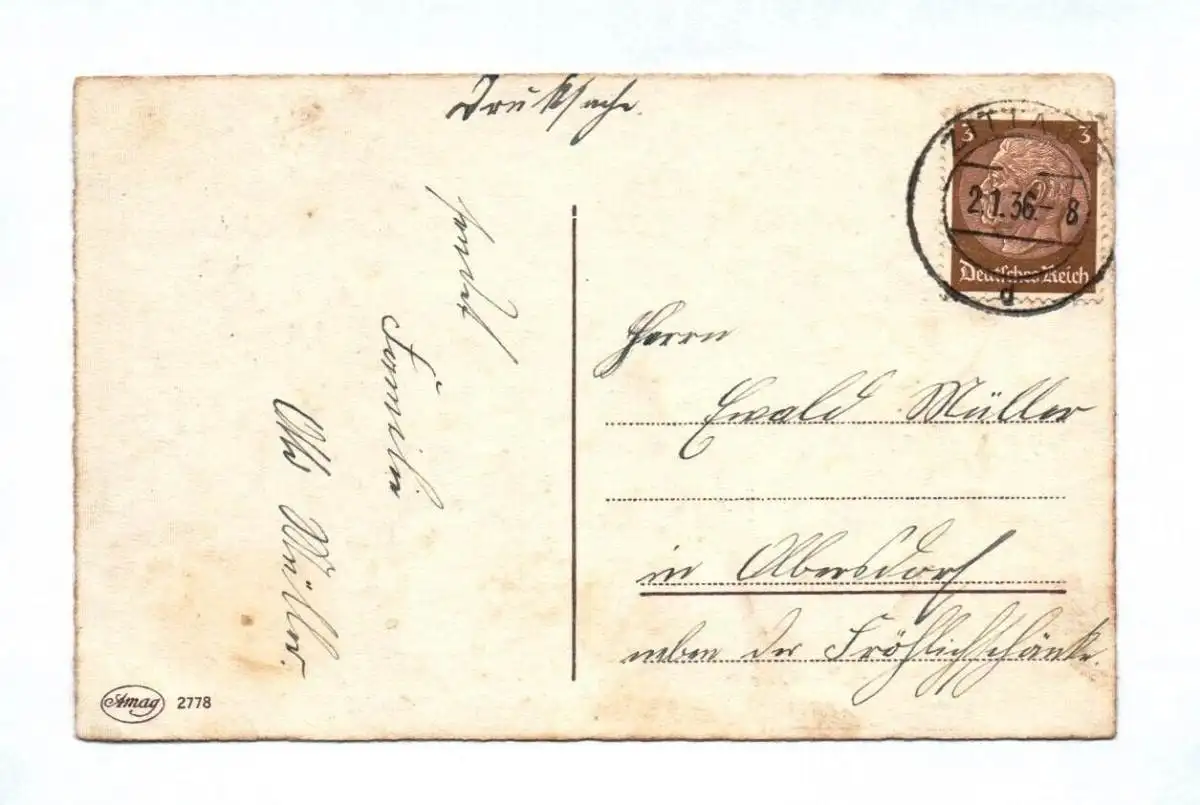 Drucksache.
sendet
Familie
Müller.
ZITTAU
2.1.36.-8
d
3 3
Deutsches Reich
Herrn
Ewald Müller
in Olbersdorf
neben der Fröhlichschänke.
Amag 2778